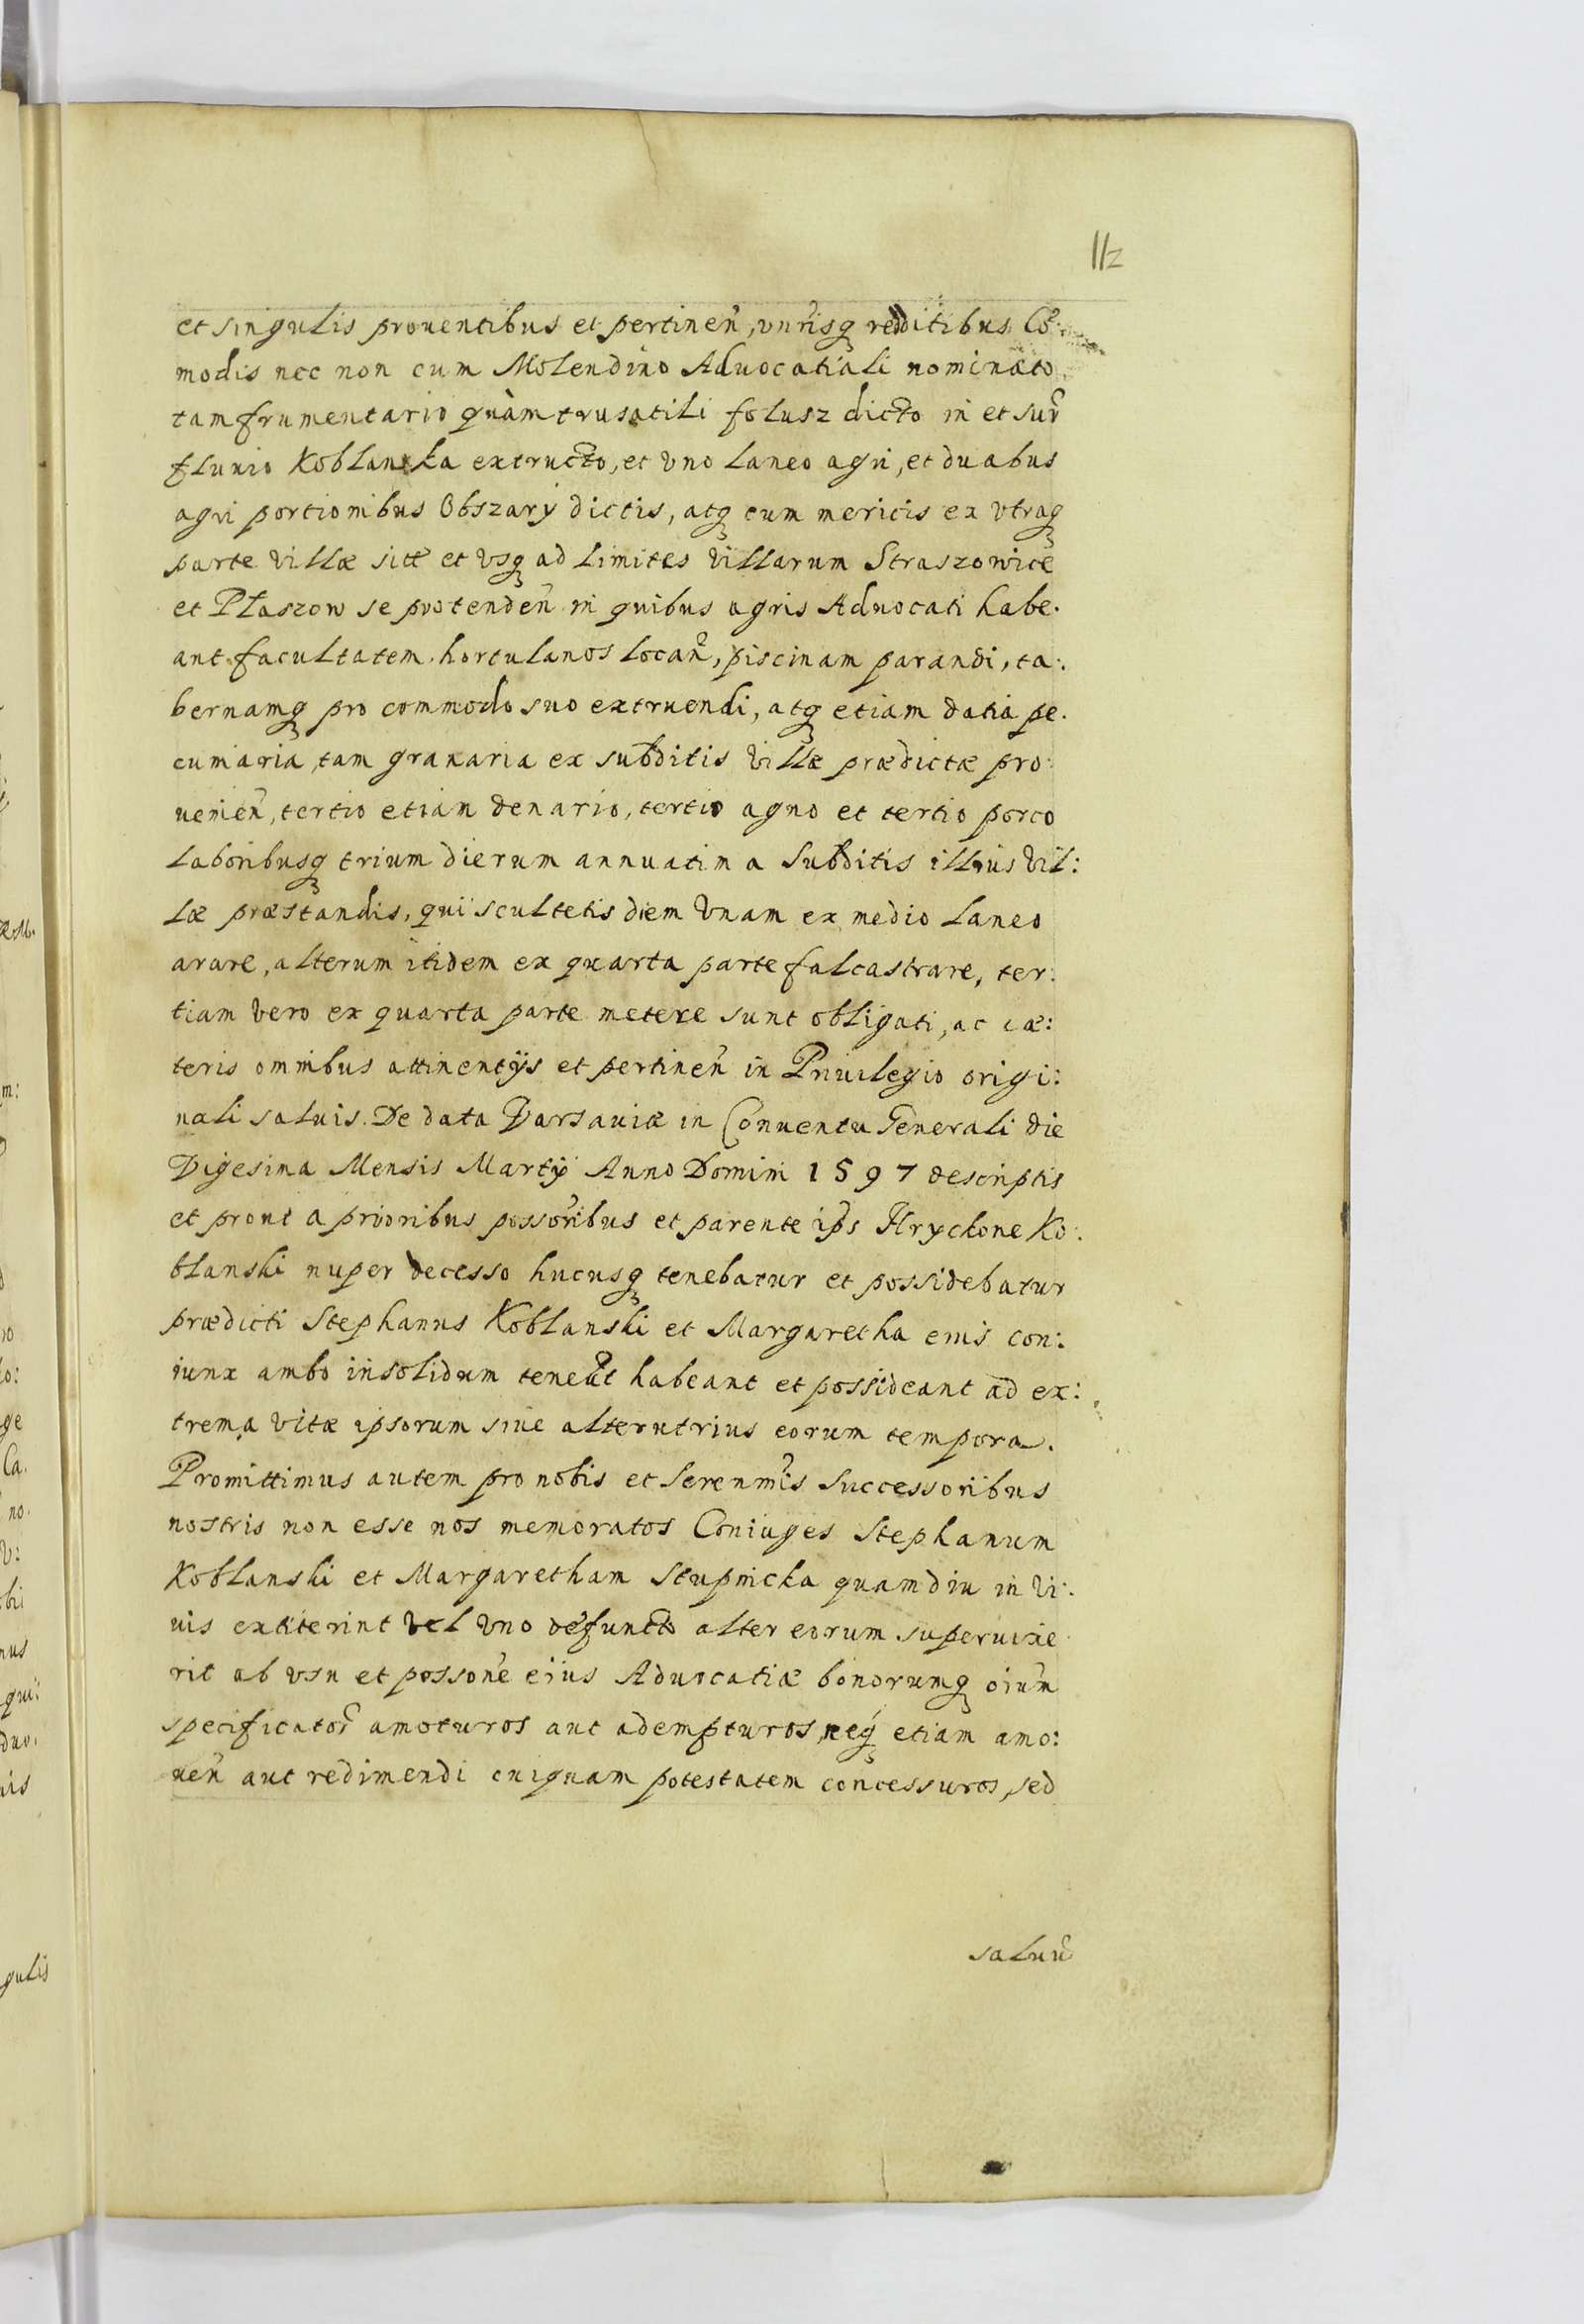 112
et singulis prouentibus et pertineñ, vnűsq redditibus Co͂:
modis nec non cum Molendino Aduocatiali nominato
tam frumentario quàm trusatili folusz dicto in et sup̃
fluuio Koblanska extructo, et vno laneo agri, et duabus
agri portionibus Obszary dictis, atq cum mericis ex vtraq
parte villæ sitẽ et vsq ad limites villarum Straszowice
et Płaszow se protendeñ in quibus agris Aduocati habe.
ant facultatem hortulanos locañ, piscinam parandi, ta:
bernamq pro commodo suo extruendi, atq etiam datia pe.
cuniaria tam granaria ex subditis villæ prædictæ pro:
uenieñ, tertio etiam denario, tertio agno et tertio porco
laboribusq trium dierum annuatim a subditis illius vil:
læ præstandis, qui scultetis diem vnam ex medio laneo
arare, alterum itidem ex quarta parte falcastrare, ter:
tiam vero ex quarta parte metere sunt obligati, ac cæ:
teris omnibus attinentijs et pertineñ in Priuilegio origi:
nali saluis. De data Varsauiæ in Conuentu Generali die
Vigesima Mensis Martij Anno Domini 1597 descriptis
et prout a prioribus possoribus et parente ip̃s Hryckone Ko:
blanski nuper decesso hucusq tenebatur et possidebatur
prædicti Stephanus Koblanski et Margaretha eius con:
iunx ambo insolidum teneãt habeant et possideant ad ex:
trema vitæ ipsorum siue alterutrius eorum tempora.
Promittimus autem pro nobis et Serenm̃is Successoribus
nostris non esse nos memoratos Coniuges Stephanum
Koblanski et Margaretham Stupnicka quamdiu in vi:
uis extiterint vel vno defuncto alter eorum superuixe
rit ab vsu et possone eius Aduocatiæ bonorumq oium
specificator̃ amoturos aut adempturos, neq etiam amo:
ueñ aut redimendi cuiquam potestatem concessuros, sed
saluũ